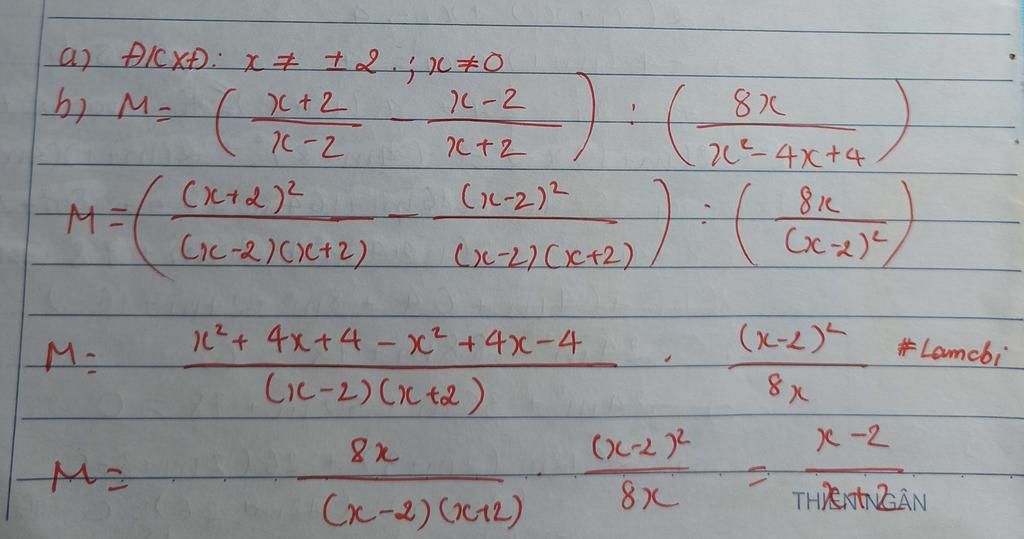 a) ĐKXĐ: x ≠ ±2 ; x ≠ 0
b) M = ( (x+2)/(x-2) - (x-2)/(x+2) ) : ( 8x/(x² - 4x + 4) )
M = ( (x+2)²/((x-2)(x+2)) - (x-2)²/((x-2)(x+2)) ) : ( 8x/(x-2)² )
M = (x² + 4x + 4 - x² + 4x - 4)/((x-2)(x+2)) . (x-2)²/8x #Lamcbi
M = 8x/((x-2)(x+2)) . (x-2)²/8x = (x-2)/(x+2)
THIEN NGÂN